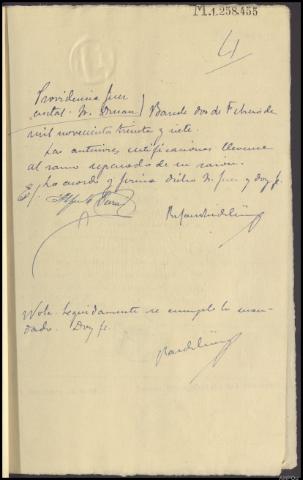 M.1.258.455
4
Providencia Juez
Baende dos de Febrero de
mil novecientos treinta y siete.
Las anteriores certificaciones llevense
al ramo separado de su razón.
Lo acordó y firma dicho Sr. Juez y doy fe.
Nota. Seguidamente se cumple lo man-
dado. Doy fe.